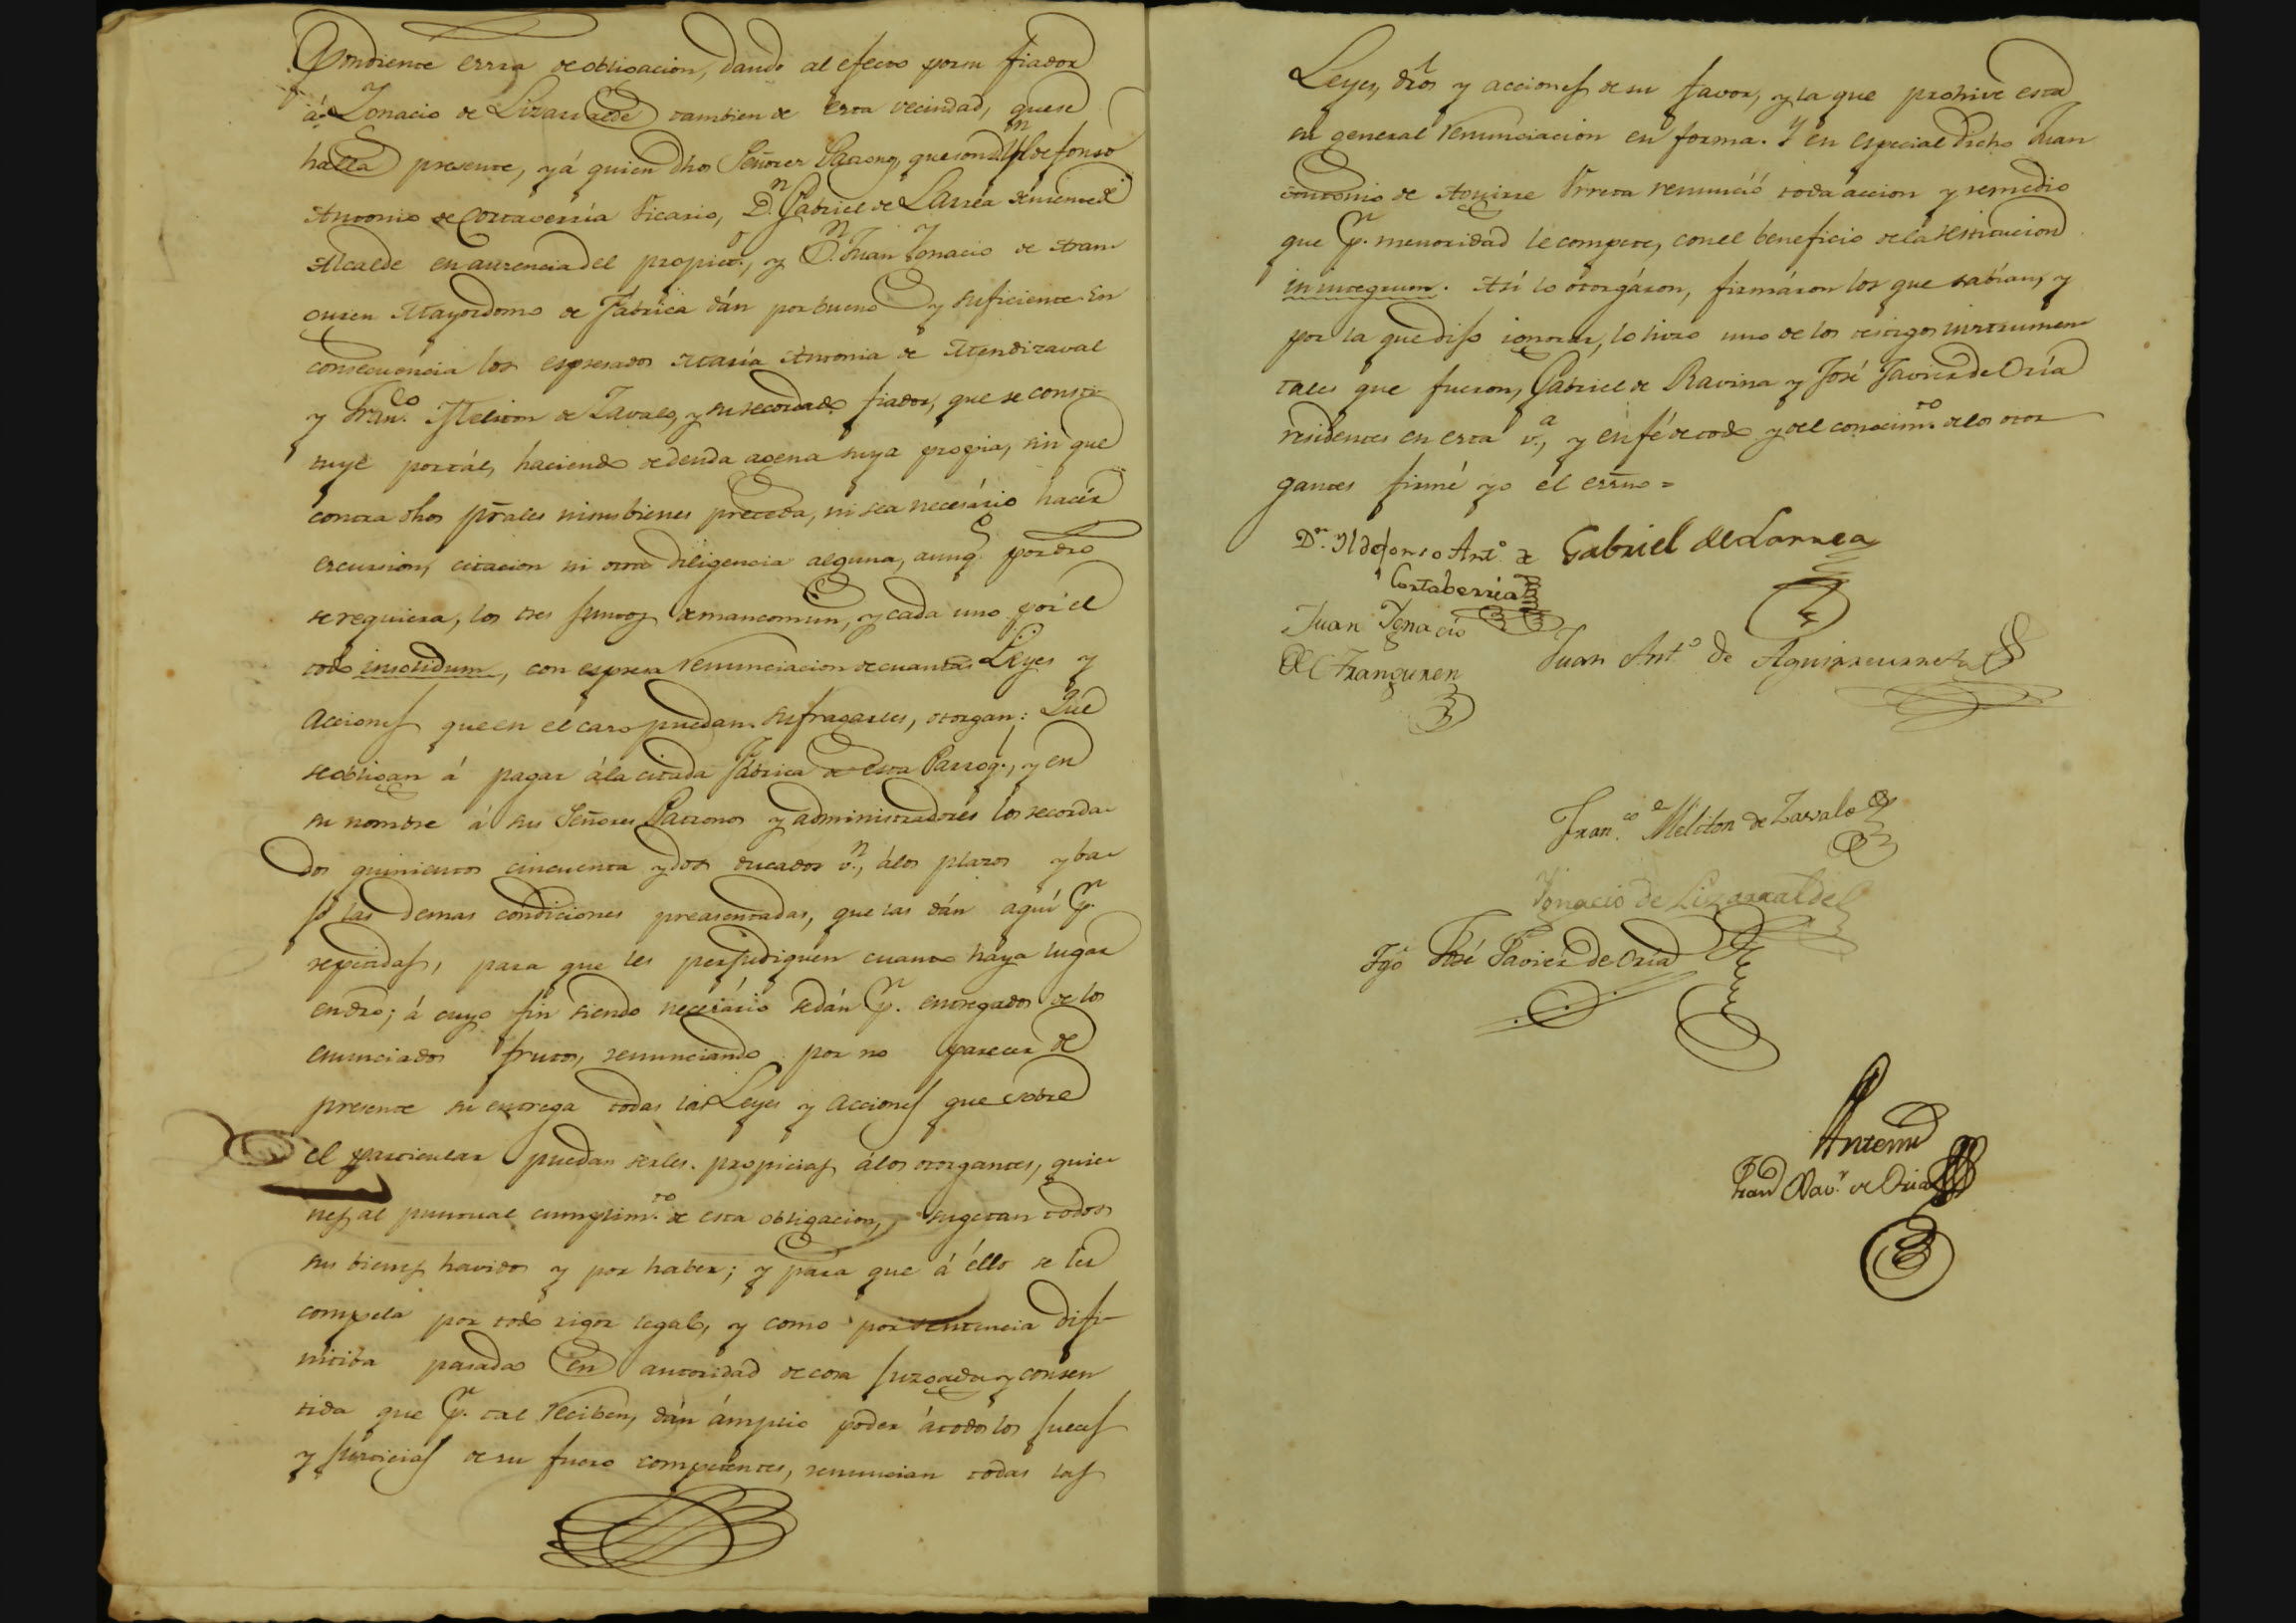 pondiente errra de obligacion, dando al efecto por su fiador
á Ignacio de Lizarralde tambien de esta vecindad, que se
halla presente, y á quien dhos Señores Patrons, que son Dn Yldefonso
Antonio de Cortaverria Vicario, Dn Gabriel de Larrea teniente de
Alcalde en ausencia del propieto., y Dn Juan Ignacio de Aran-
guren Mayordomo de Fábrica dán por bueno y suficiente. En
consecuencia los espresados Maria Antonia de Mendizaval
y Franco. Meliton de Zavalo, y su recordado fiador, que se consti-
tuye por tál, haciendo de deuda agena suya propia, sin que
contra dhos prales ni sus bienes preceda, ni sea necesário hacér
escursion, citacion ni otra diligencia alguna, aunq. por dro
se requiera, los tres juntos de mancomun, y cada uno por el
todo insolidum, con espresa renunciacion de cuantas Leyes y
Acciones que en el caso puedan sufragarles, otorgan: Que
se obligan á pagar á la citada Fábrica de esta Parroq., y en
su nombre á sus Señores Patronos y administradores los recorda-
dos quinientos cincuenta y dos ducados vn., á los plazos y ba-
jo las demas condiciones preasentadas, que las dán aquí pr.
repetidas, para que les perjudiquen cuanto haya lugar
en dro; á cuyo fin siendo necesário se dán pr. entregados de los
enunciados frutos, renunciando por no parecer de
presente su entrega todas las Leyes y Acciones que sobre
el particular puedan serles propicias á los otorgantes, quie-
nes al puntual cumplimto. de esta obligacion, sugetan todos
sus bienes havidos y por haber; y para que á ello se les
compela por todo rigor legal, y como por sentencia difi-
nitiba pasada en autoridad de cosa juzgada y consen
tida que pr. tal reciben, dán ámplio poder á todos los Jueces
y Justicias de su fuero competentes, renuncian todas las
Leyes, dros y acciones de su favor, y la que prohive esta
en general renunciacion en forma. Y en especial dicho Juan
Antonio de Aguirre Urreta renunció toda accion y remedio
que pr. menoridad le compete, con el beneficio de la restitucion
in integrum. Así lo otorgáron, firmáron los que sabian, y
por la que dijo ignorar, lo hizo uno de los testigos instrumen-
tales que fueron, Gabriel de Ravina y José Javier de Oria
residentes en esta va., y en fé de todo y del conocimto. de los otor
gantes firmé yo el esrno =
Dn. Yldefonso Anto. de Gabriel de Larrea
Cortaberria
Juan Ygnacio
de Aranguren Juan Anto. de Aguirreurreta
Franco. Meliton de Zavalo
Ygnacio de Lizarralde
Tgo José Javier de Oria
Antemi
Fran Xavr. de Oria